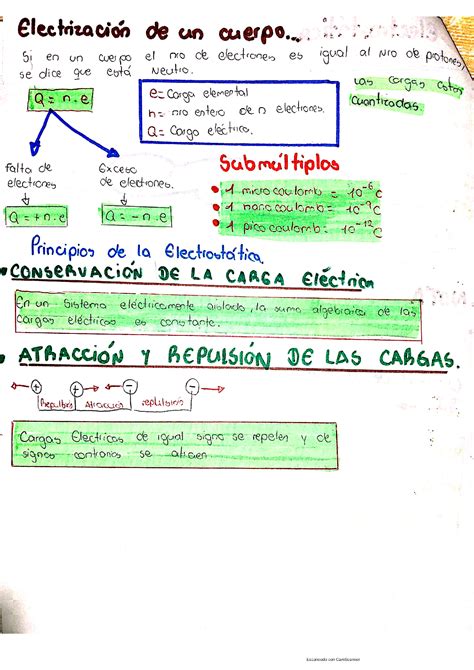 Electrización de un cuerpo...
Si en un cuerpo el nro de electrones es igual al Nro de protones,
se dice que está Neutro.
Las cargas estas
cuantizadas.
Q = n.e
e= Carga elemental
n= nro entero de n electrones.
Q= Carga eléctrica.
falta de
electrones
Exceso
de electrones.
Q = + n.e
Q = - n.e
Submúltiplos
1 microcoulomb = 10⁻⁶ C
1 nanocoulomb = 10⁻⁹ C
1 picocoulomb = 10⁻¹² C
Principios de la Electrostática.
CONSERVACIÓN DE LA CARGA Eléctrica
En un Sistema eléctricamente aislado, la suma algebraica de las
cargas eléctricas es constante.
ATRACCIÓN Y REPULSIÓN DE LAS CARGAS.
+ + - -
Repulsión Atracción repulsión
Cargas Electricas de igual signo se repelen y de
signos contrarios se atraen
Escaneado con CamScanner